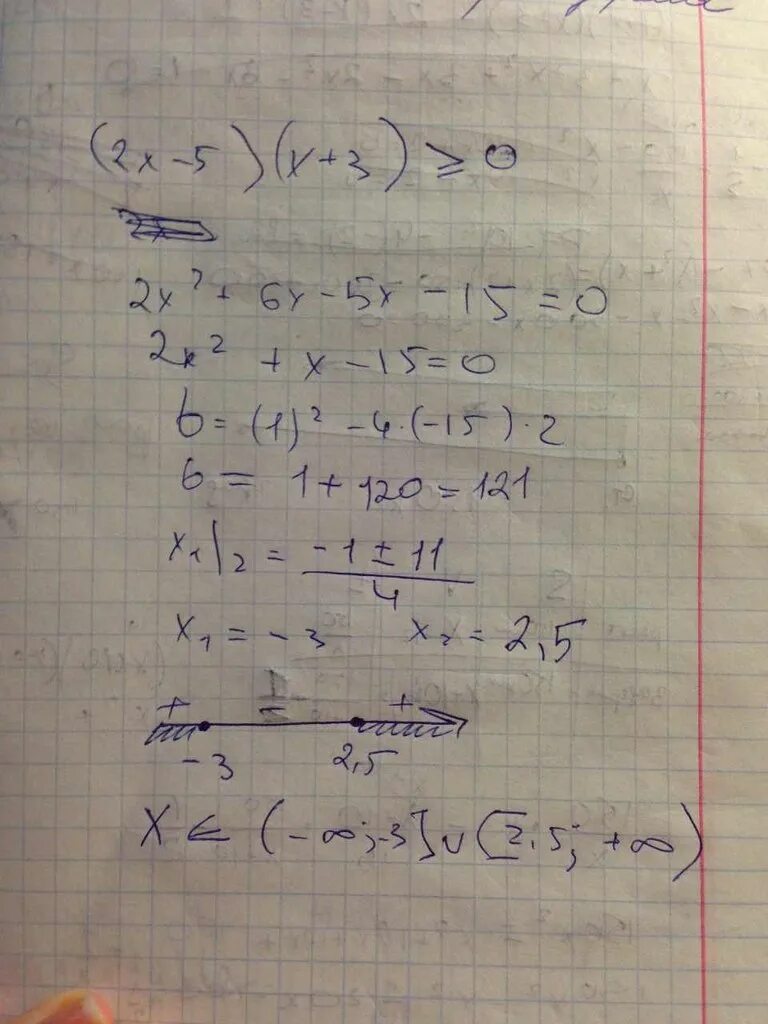 (2x-5)(x+3) ≥ 0
2x² + 6x - 5x - 15 = 0
2x² + x - 15 = 0
D = (1)² - 4·(-15)·2
D = 1 + 120 = 121
x₁/₂ = (-1 ± 11)/4
x₁ = -3 x₂ = 2,5
+ - +
-3 2,5
X ∈ (-∞; -3] ∪ [2,5; +∞)